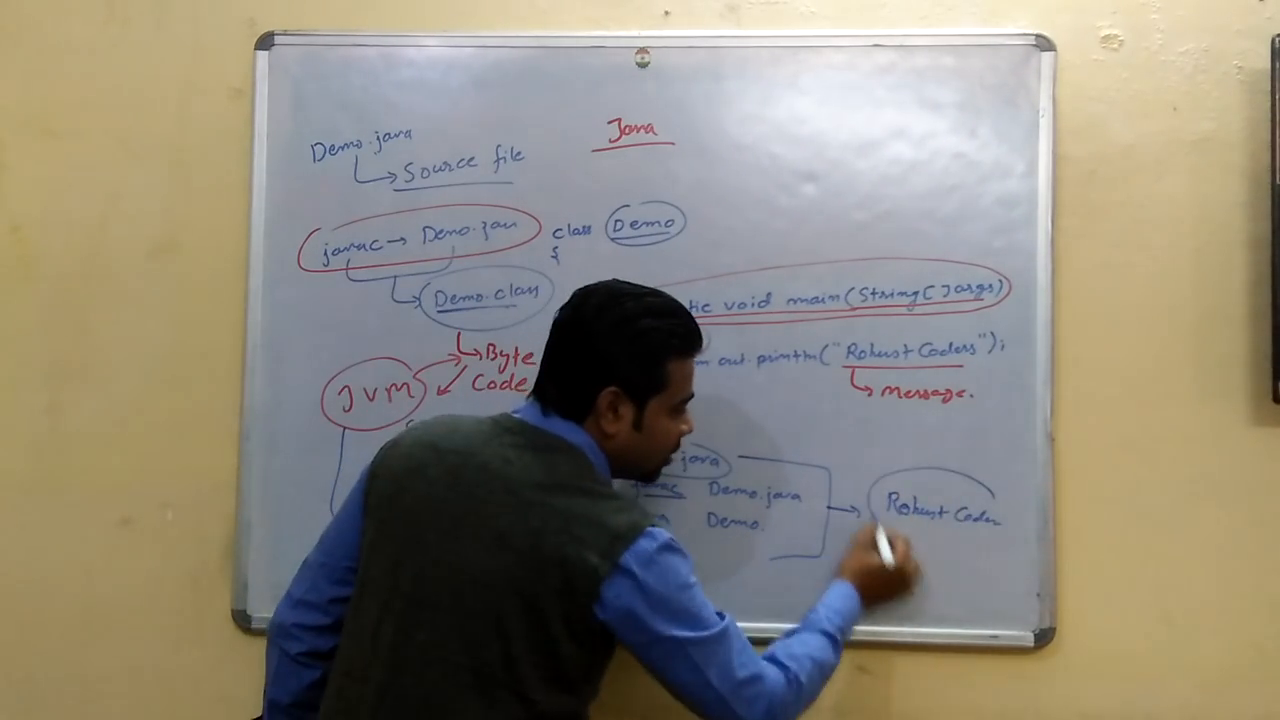 Java
Demo.java
Source file
javac → Demo.java
Demo.class
Byte
Code
JVM
class Demo
{
void main(String[]args)
out.println("Robust Coders");
message.
java
javac Demo.java
Demo.
Robust Coder